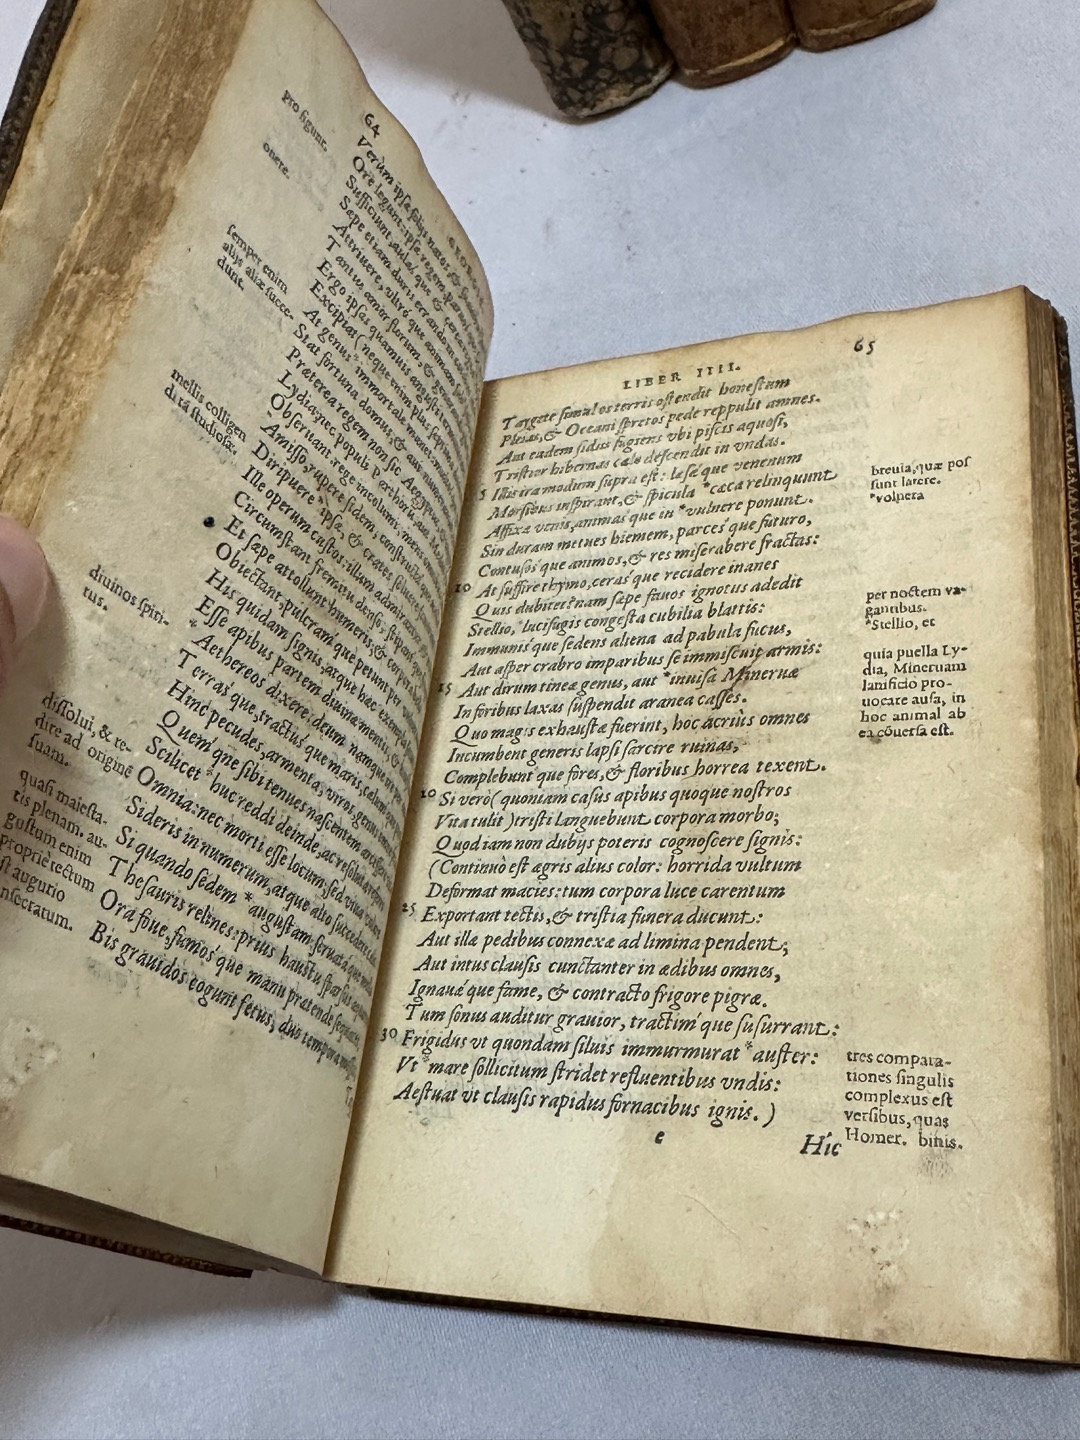 64
pro figunt.
onere.
semper enim
alijs aliæ succe-
dunt.
mellis colligen
di tã studiosæ.
diuinos spiri-
tus.
dissolui, & re-
dire ad originē
suam.
quasi maiesta-
tis plenam. au-
gustum enim
propriè tectum
st augurio
nsecratum.
Verùm ipsæ folijs natos, &
Ore legunt: ipsæ regem, paruos
Sufficiunt, aulas que & cerea regna
Sæpe etiam duris errando in
Attriuere, vltró que animam sub
Tantus amor florum, & generandi
Ergo ipsas quamuis angusti terminus
Excipiat (neque enim plus septima
At genus *immortale manet,
Stat fortuna domus, & aui numerantur
Præterea regem non sic Aegyptus, &
Lydia, nec populi Parthorum, aut
Obseruant. rege incolumi mens omnibus
*Amisso, rupere fidem, constructá que
Diripuere *ipsæ, & crates soluere
Ille operum custos: illum admirantur
Circumstant fremitu denso, stipánt que
Et sæpe attollunt humeris, & corpora
Obiectant: pulcrám que petunt per
His quidam signis, atque hæc exempla
Esse apibus partem diuinæ mentis, &
*Aethereos dixere. deum namque ire per
Terrás que, tractús que maris, cælum que
Hinc pecudes, armenta, viros, genus omne
Quem'que sibi tenues nascentem arcessere
Scilicet *huc reddi deinde, ac resoluta
Omnia: nec morti esse locum, sed viua
Sideris in numerum, atque alto succedere
Si quando sedem *augustam, seruatá que
Thesauris relines: prius haustu sparsus
Ora foue, fumós'que manu prætende
Bis grauidos cogunt fetus, duo tempora
65
LIBER IIII.
Taygete simul os terris ostendit honestum
Pleias, & Oceani spretos pede reppulit amnes.
Aut eadem sidus fugiens vbi piscis aquosi,
Tristior hibernas cælo descendit in vndas.
5 Illis ira modum supra est: læsæ'que venenum
Morsibus inspirant, & spicula *cæca relinquunt
Affixæ venis, animas'que in *vulnere ponunt.
Sin duram metues hiemem, parces'que futuro,
Contusos'que animos, & res miserabere fractas:
10 At suffire thymo, ceras'que recidere inanes
Quis dubitet? nam sæpe fauos ignotus adedit
Stellio, *lucifugis congesta cubilia blattis:
Immunis'que sedens aliena ad pabula fucus,
Aut asper crabro imparibus se immiscuit armis:
15 Aut dirum tineæ genus, aut *inuisa Mineruæ
In foribus laxas suspendit aranea casses.
Quo magis exhaustæ fuerint, hoc acrius omnes
Incumbent generis lapsi sarcire ruinas,
Complebunt'que fores, & floribus horrea texent.
20 Si verò (quoniam casus apibus quoque nostros
Vita tulit) tristi languebunt corpora morbo;
Quod iam non dubijs poteris cognoscere signis:
(Continuò est ægris alius color: horrida vultum
Deformat macies: tum corpora luce carentum
25 Exportant tectis, & tristia funera ducunt:
Aut illæ pedibus connexæ ad limina pendent;
Aut intus clausis cunctanter in ædibus omnes,
Ignauæ'que fame, & contracto frigore pigræ.
Tum sonus auditur grauior, tractim'que susurrant:
30 Frigidus vt quondam siluis immurmurat *auster:
Vt *mare sollicitum stridet refluentibus vndis:
Aestuat vt clausis rapidus fornacibus ignis.)
e
Hic
breuia, quæ pos
sunt latere.
*volnera
per noctem va-
gantibus.
*Stellio, et
quia puella Ly-
dia, Mineruam
lanificio pro-
uocare ausa, in
hoc animal ab
ea cõuersa est.
tres compara-
tiones singulis
complexus est
versibus, quas
Homer. binis.